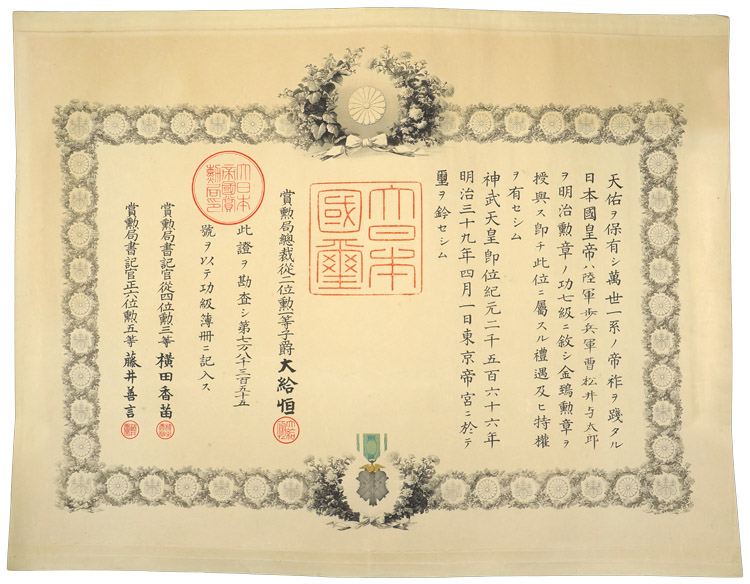 天佑ヲ保有シ萬世一系ノ帝祚ヲ踐タル
日本國皇帝ハ陸軍歩兵軍曹松井与太郎
ヲ明治勲章ノ功七級ニ敘シ金鵄勲章ヲ
授與ス即チ此位ニ屬スル禮遇及ヒ特權
ヲ有セシム
神武天皇即位紀元二千五百六十六年
明治三十九年四月一日東京帝宮ニ於テ
璽ヲ鈐セシム
大日本
國璽
賞勲局總裁從二位勲一等子爵大給恒
此證ヲ勘査シ第七万八千三百五十五
號ヲ以テ功級簿冊ニ記入ス
大日本
帝國賞
勲局印
賞勲局書記官從四位勲三等横田香苗
賞勲局書記官正六位勲五等藤井善言